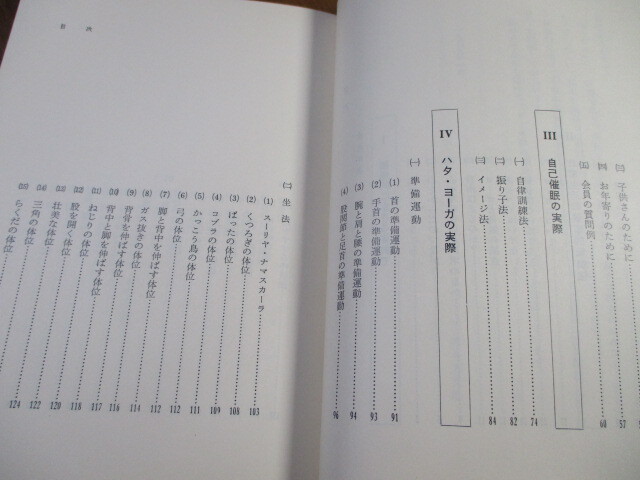 ㈢ 子供さんのために……57
㈣ お年寄りのために……60
㈤ 会員の質問例
III 自己催眠の実際
㈠ 自律訓練法……74
㈡ 振り子法……82
㈢ イメージ法……84
IV ハタ・ヨーガの実際
㈠ 準備運動
(1) 首の準備運動……91
(2) 手首の準備運動……93
(3) 腕と肩と腰の準備運動……94
(4) 股関節と足首の準備運動……96
目次
㈡ 坐法
(1) スーリヤ・ナマスカーラ……103
(2) くつろぎの体位……108
(3) ばったの体位……109
(4) コブラの体位……111
(5) かっこう鳥の体位……112
(6) 弓の体位……112
(7) 脚と背中を伸ばす体位……112
(8) ガス抜きの体位……114
(9) 背骨を伸ばす体位……116
(10) 背中と脚を伸ばす体位……117
(11) ねじりの体位……118
(12) 股を開く体位……120
(13) 壮美な体位……122
(14) 三角の体位……124
(15) らくだの体位